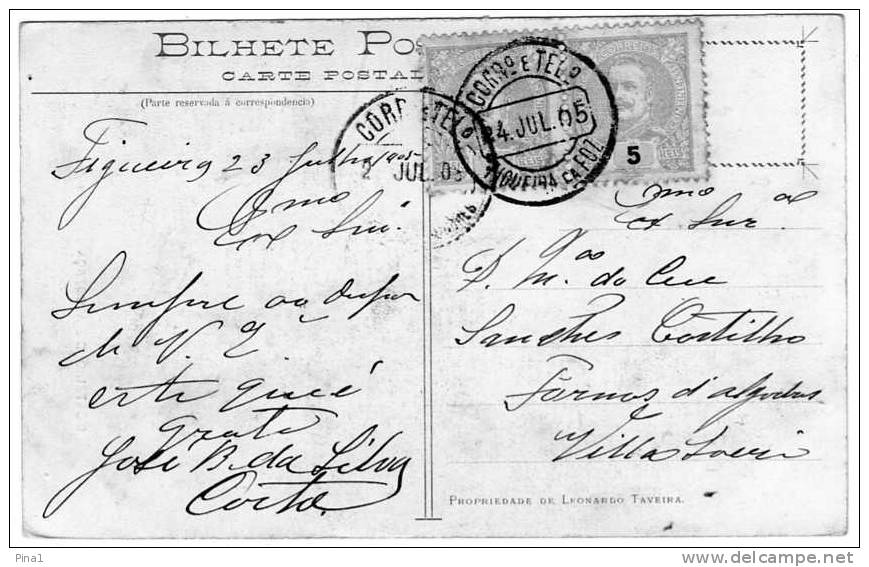 BILHETE POS
CARTE POSTAL
(Parte reservada á correspondencia)
CORRO E TELO
24. JUL. 05
FIGUEIRA DA FOZ
CORRO E TELO
2 JUL. 05
CORREIOS
REIS
5
Figueira 23 Julho 1905
Exmo
Sempre ao dispor
de V. Ex
este que é
grato
José B. da Silva
Costa
Exma Snra
D. Ma do Ceu
Sanches Castilho
Fornos d'Algodres
Villa
PROPRIEDADE DE LEONARDO TAVEIRA.
Pina1
delcampe.net